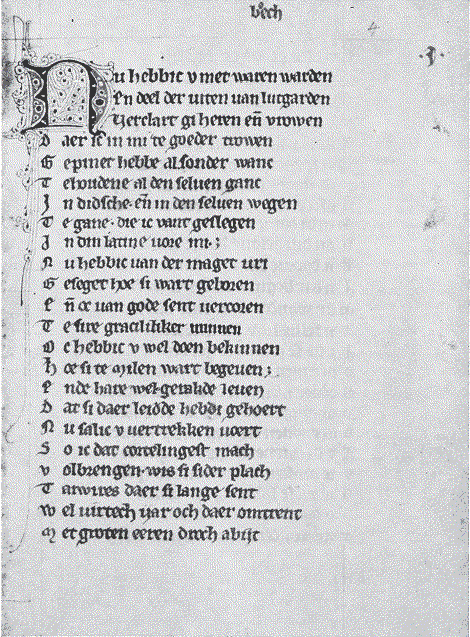 boech
4
·J·
Nu hebbic v met waren warden
En deel der viten uan lutgarden
Uerclart gi heren eñ vrowen
D aer ic in mi te goeder trowen
G epinet hebbe al sonder wanc
T e houdene al den seluen ganc
J n didsche eñ in den seluen wegen
T e gane · die ic vant geslegen
J n din latine uore mi ·;
N u hebbic uan der maget uri
G eseget hoe si wart geboren
E ñ oc uan gode sent uercoren
T e sire gracilikker minnen
O c hebbic v wel doen bekinnen
H oe si te Milen wart begeuen ;
E nde hare wel getalde leuen
D at si daer leidde hebdi gehoert
N u salic v uertrekken uoert
S o ic dat cortelingest mach
V olbrengen wis si sider plach
T aiwires daer si lange sent
W el uirtech iaer och daer omtrent
M et groten eeren droch abijt